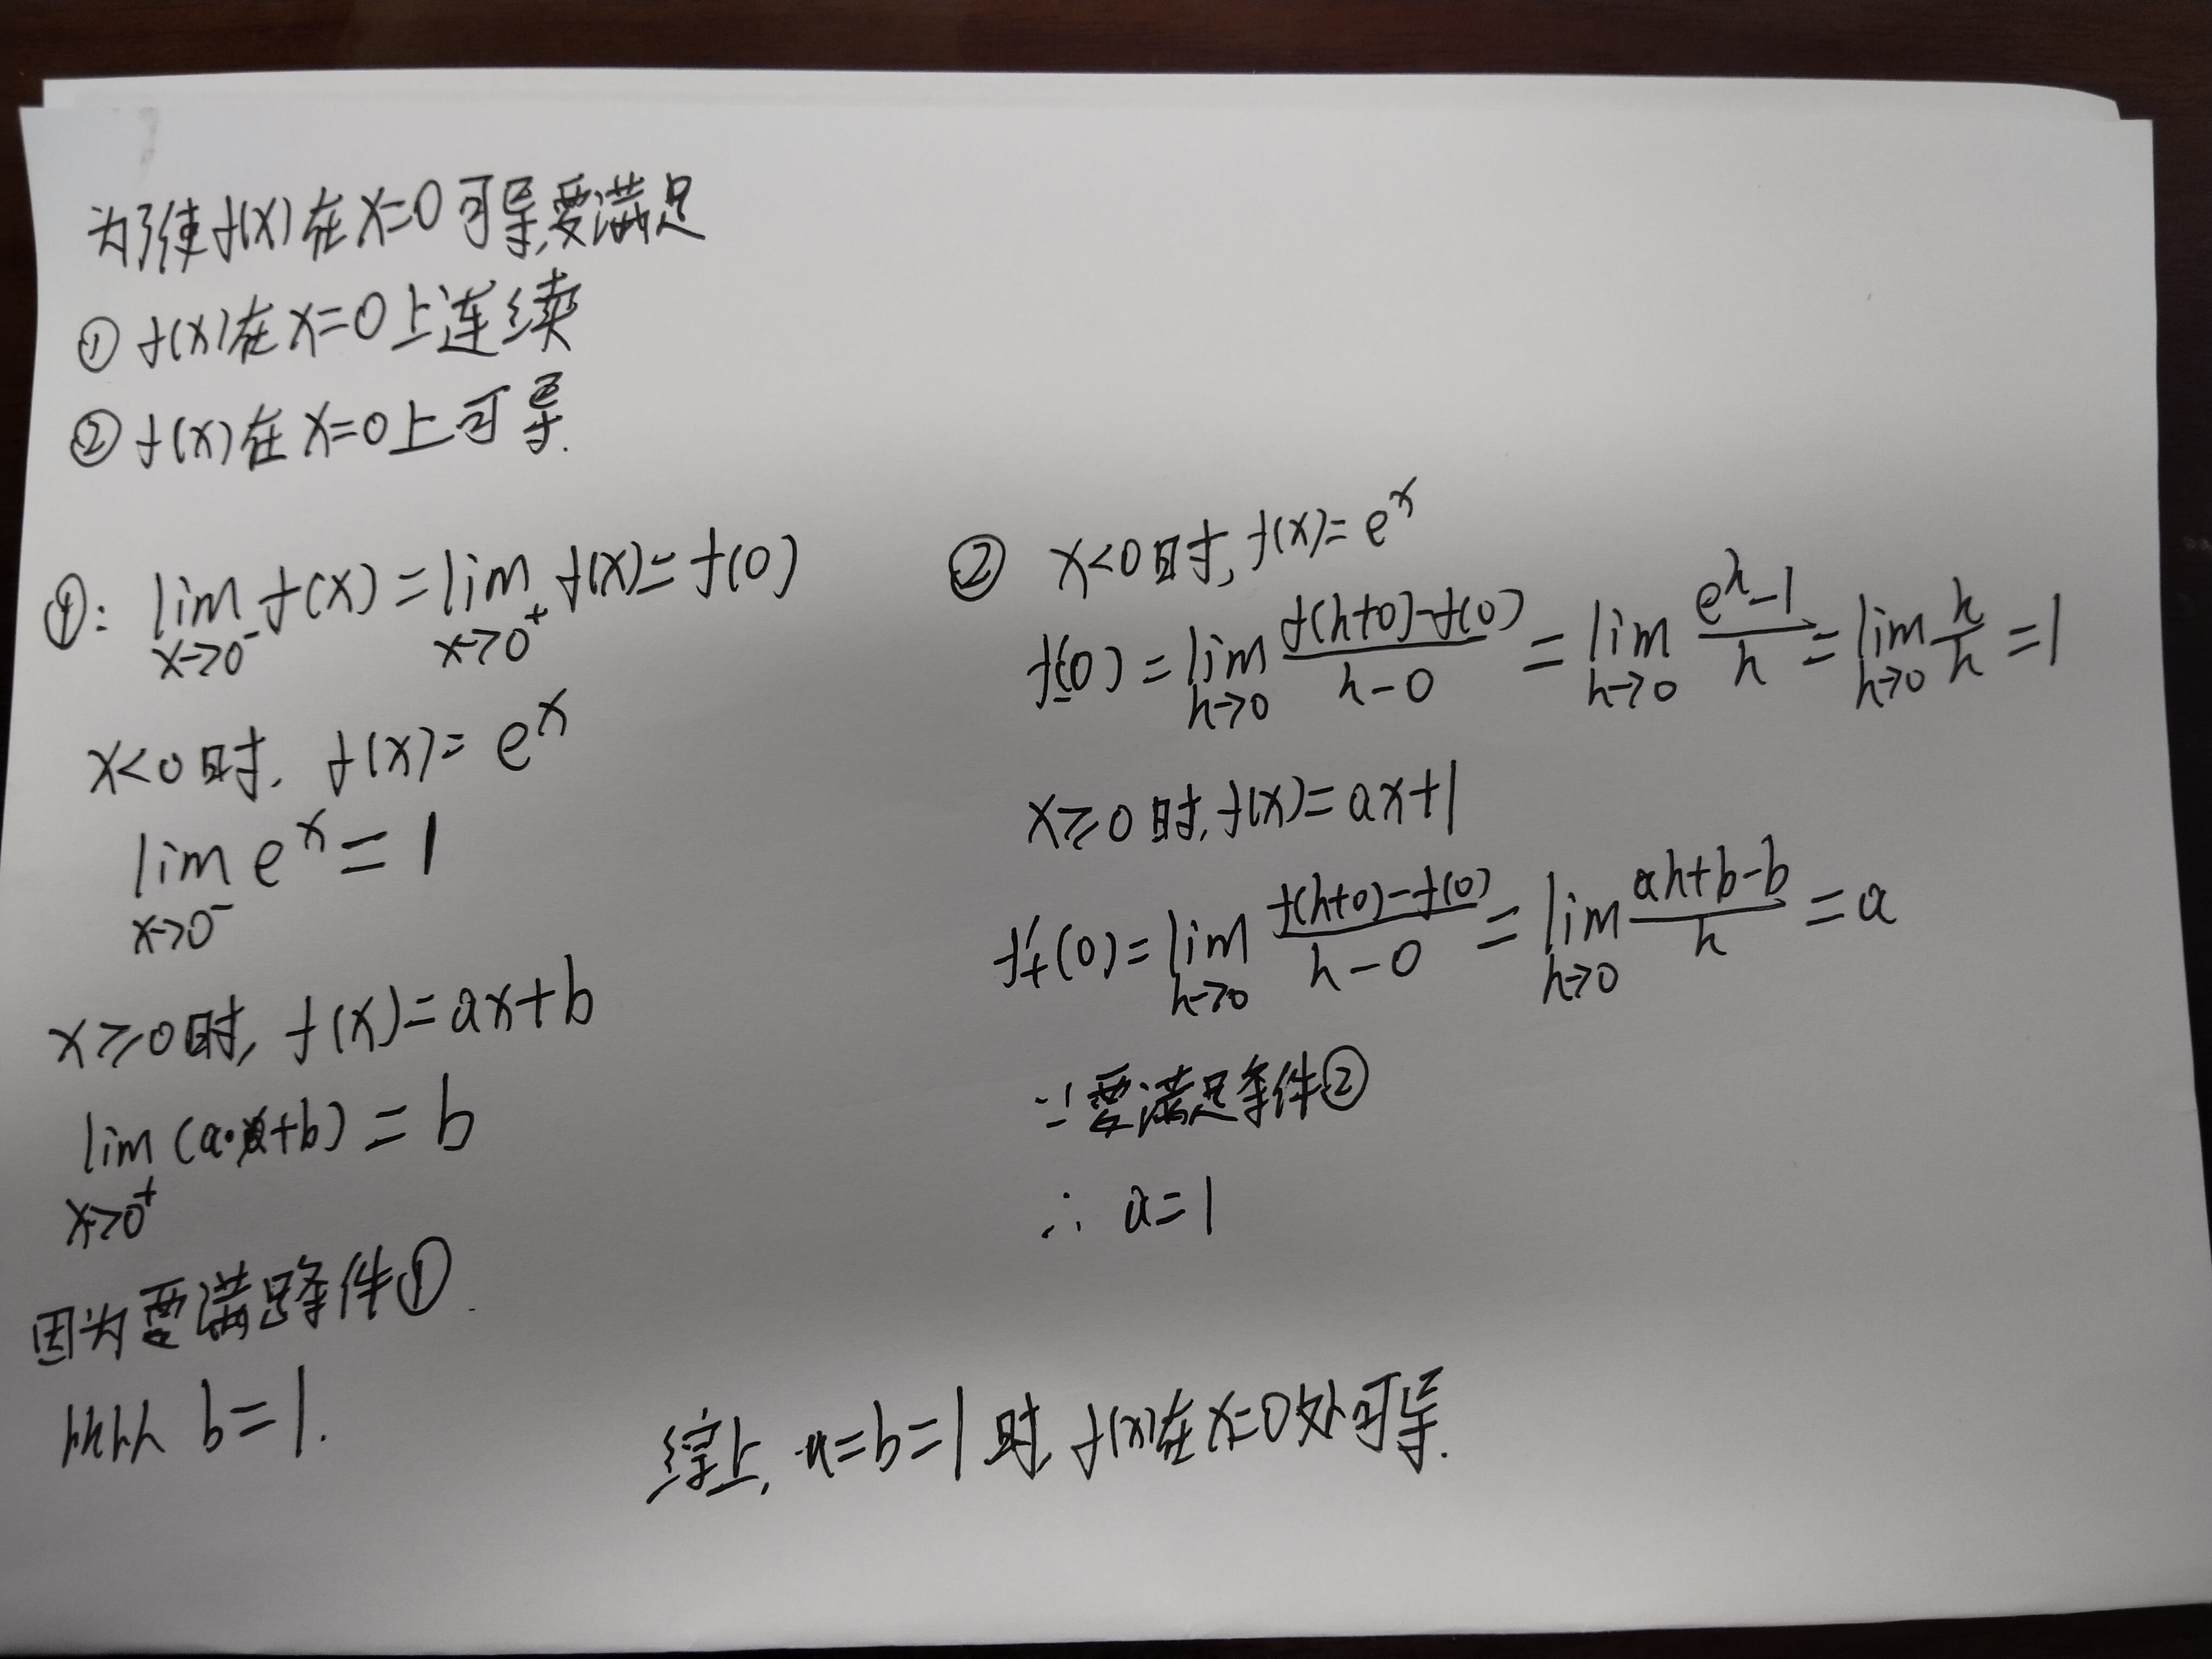 为了使f(x)在x=0可导,要满足
① f(x)在x=0上连续
② f(x)在x=0上可导.
①: lim_{x→0⁻} f(x) = lim_{x→0⁺} f(x) = f(0)
x<0时, f(x)= e^x
lim_{x→0⁻} e^x = 1
x≥0时, f(x)= ax+b
lim_{x→0⁺} (a·x+b) = b
因为要满足条件①.
所以 b=1.
② x<0时, f(x)= e^x
f'_-(0) = lim_{h→0} \frac{f(h+0)-f(0)}{h-0} = lim_{h→0} \frac{e^h-1}{h} = lim_{h→0} \frac{h}{h} = 1
x≥0时, f(x)= ax+1
f'_+(0) = lim_{h→0} \frac{f(h+0)-f(0)}{h-0} = lim_{h→0} \frac{ah+b-b}{h} = a
∵要满足条件②
∴ a=1
综上, a=b=1时, f(x)在x=0处可导.